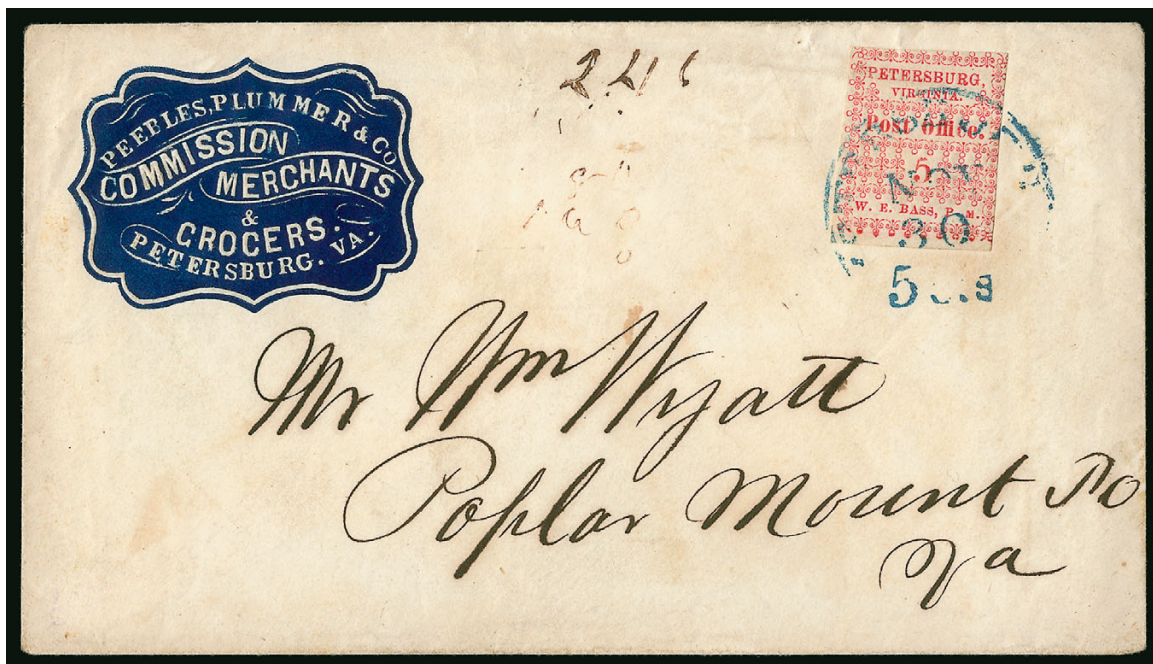 PEEBLES, PLUMMER & CO
COMMISSION
MERCHANTS
&
GROCERS.
PETERSBURG. VA.
PETERSBURG,
VIRGINIA.
Post Office.
5
W. E. BASS, P. M.
NOV
30
5
Mr Wm Wyatt
Poplar Mount PO
Va